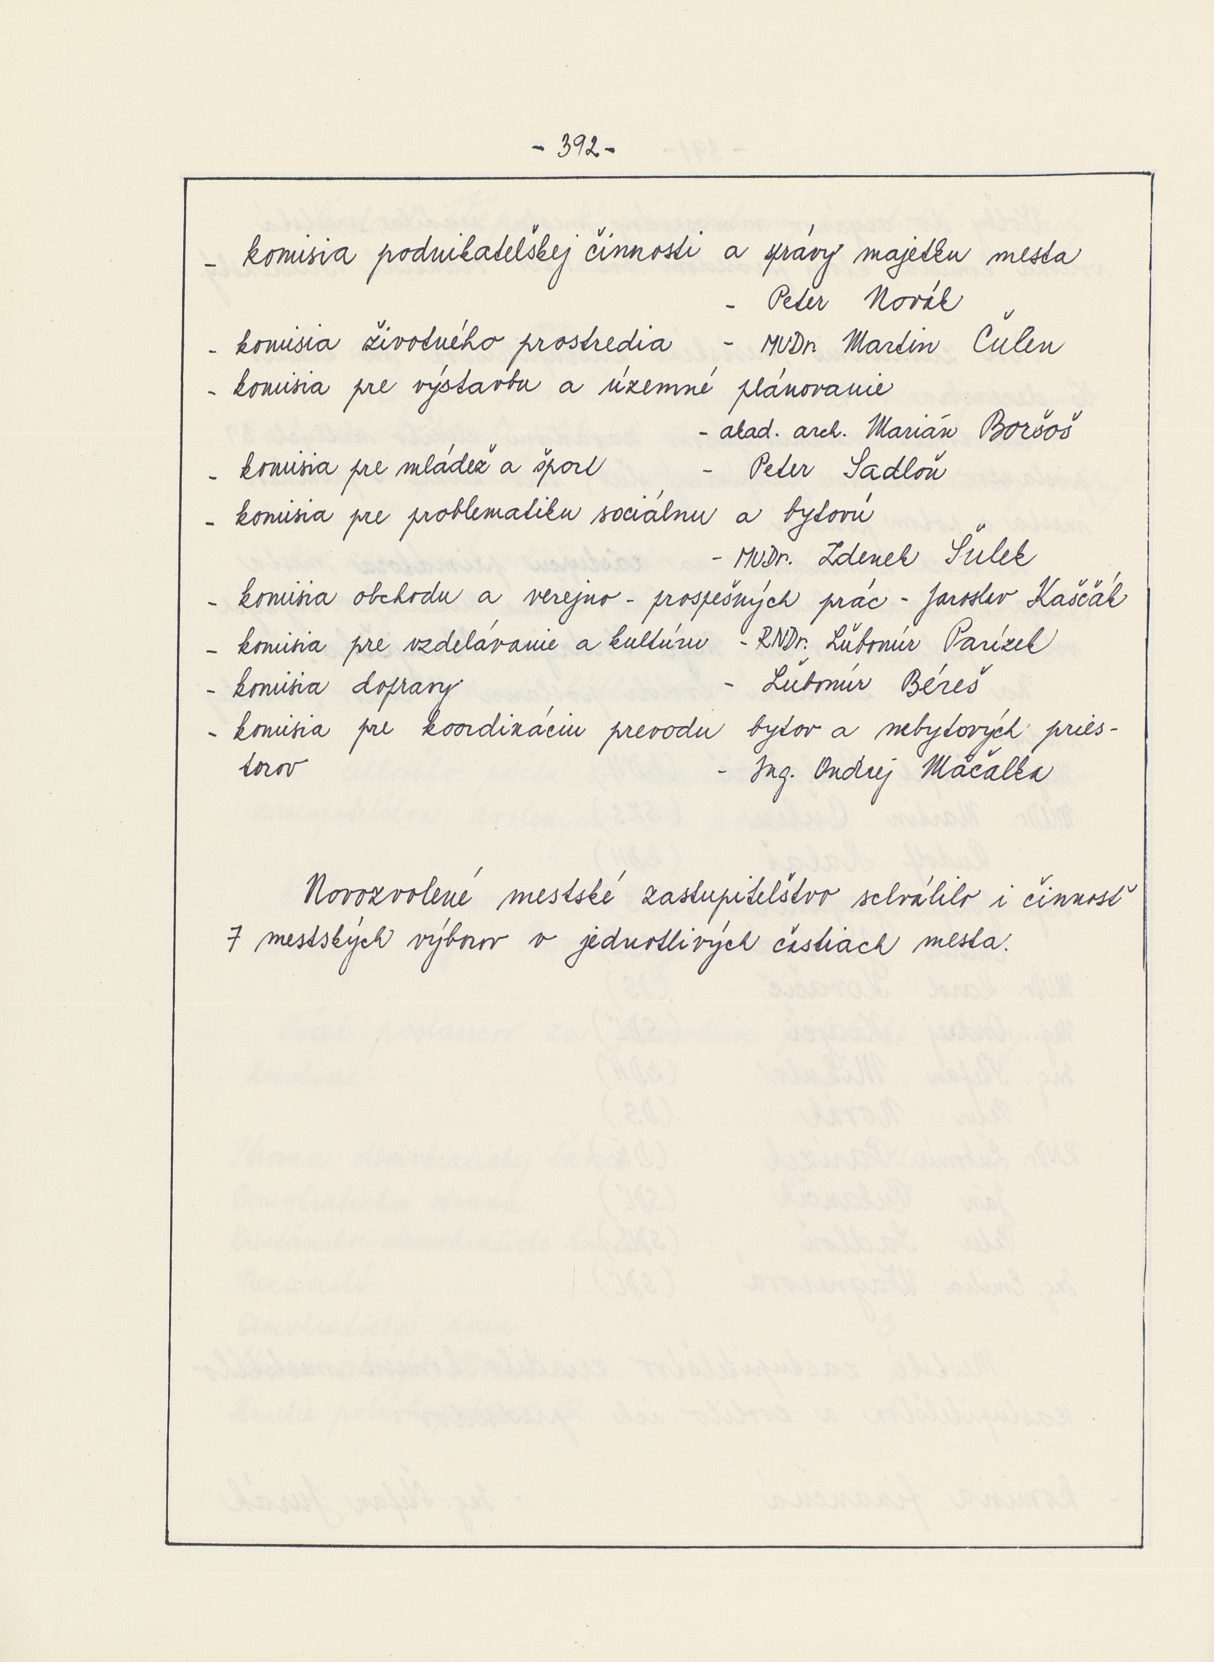 - 392 -
- komisia podnikateľskej činnosti a správy majetku mesta
- Peter Novák
- komisia životného prostredia - MVDr. Martin Čulen
- komisia pre výstavbu a územné plánovanie
- akad. arch. Marián Boršoš
- komisia pre mládež a šport - Peter Sadloň
- komisia pre problematiku sociálnu a bytovú
- MUDr. Zdenek Šulek
- komisia obchodu a verejno - prospešných prác - Jaroslav Kaščák
- komisia pre vzdelávanie a kultúru - RNDr. Ľubomír Parízek
- komisia dopravy - Ľubomír Béreš
- komisia pre koordináciu prevodu bytov a nebytových pries-
torov - Ing. Ondrej Máčalka
Novozvolené mestské zastupiteľstvo schválilo i činnosť
7 mestských výborov v jednotlivých častiach mesta.